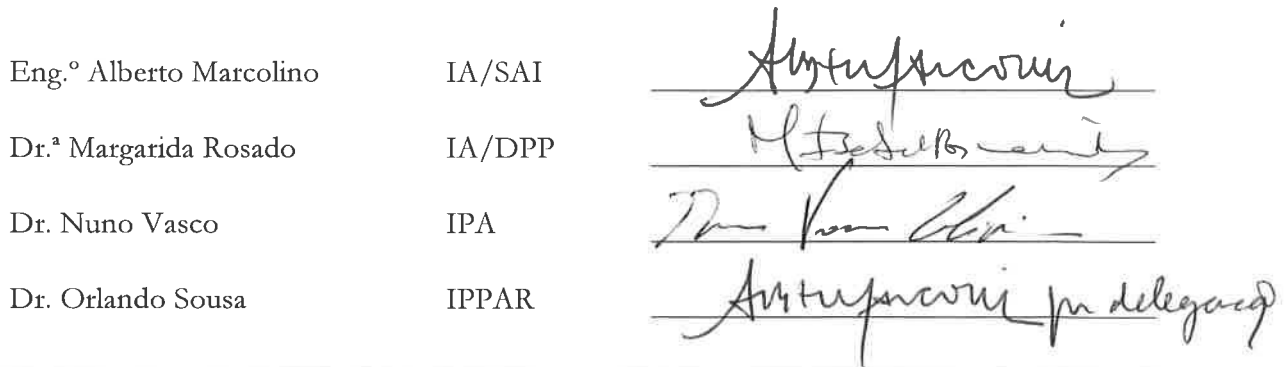 Eng.º Alberto Marcolino IA/SAI
Dr.ª Margarida Rosado IA/DPP
Dr. Nuno Vasco IPA
Dr. Orlando Sousa IPPAR por delegação